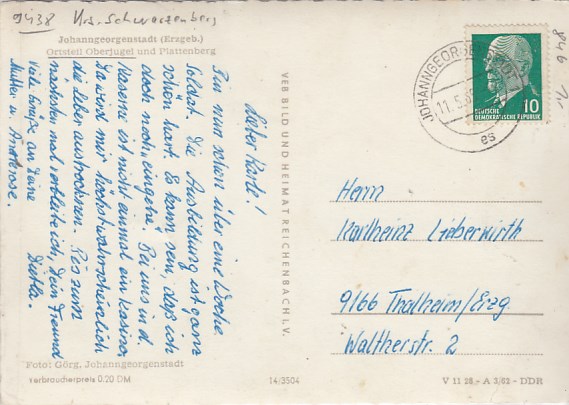 9438 Krs. Schwarzenberg
Johanngeorgenstadt (Erzgeb.)
Ortsteil Oberjugel und Plattenberg
Lieber Karle!
Bin nun schon über eine Woche
Soldat. Die Ausbildung ist ganz
schön hart. Es kann sein, daß ich
doch noch "eingehe". Bei uns in d.
Kaserne ist nicht einmal ein Kasino,
da wird mir höchstwahrscheinlich
die Leber austrocknen. Bis zum
nächsten mal verbleibe ich, Dein Freund
Viele Grüße an Deine
Mutter u. Annerose.
Foto: Görg, Johanngeorgenstadt
verbraucherpreis 0.20 DM
VEB BILD UND HEIMAT REICHENBACH I. V.
14/3504
JOHANNGEORGENSTADT
11.5.6
es
DEUTSCHE
DEMOKRATISCHE REPUBLIK
10
846
1,-
Herrn
Karlheinz Lieberwirth
9166 Thalheim/Erzg.
Waltherstr. 2
V 11 28 - A 3/62 - DDR